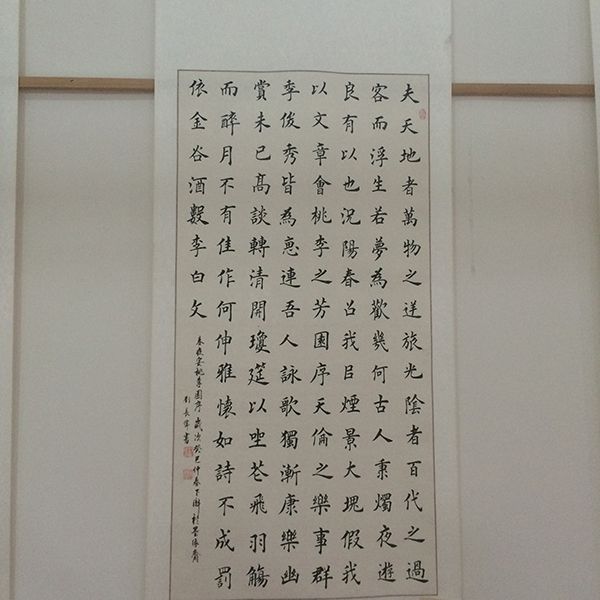 夫天地者萬物之逆旅光陰者百代之過
客而浮生若夢為歡幾何古人秉燭夜遊
良有以也況陽春召我㠯煙景大塊假我
以文章會桃李之芳園序天倫之樂事群
季俊秀皆為惠連吾人詠歌獨慚康樂幽
賞未已高談轉清開瓊筵以坐花飛羽觴
而醉月不有佳作何伸雅懷如詩不成罰
依金谷酒數李白文
春夜宴桃李園序歲次癸巳仲春下澣於